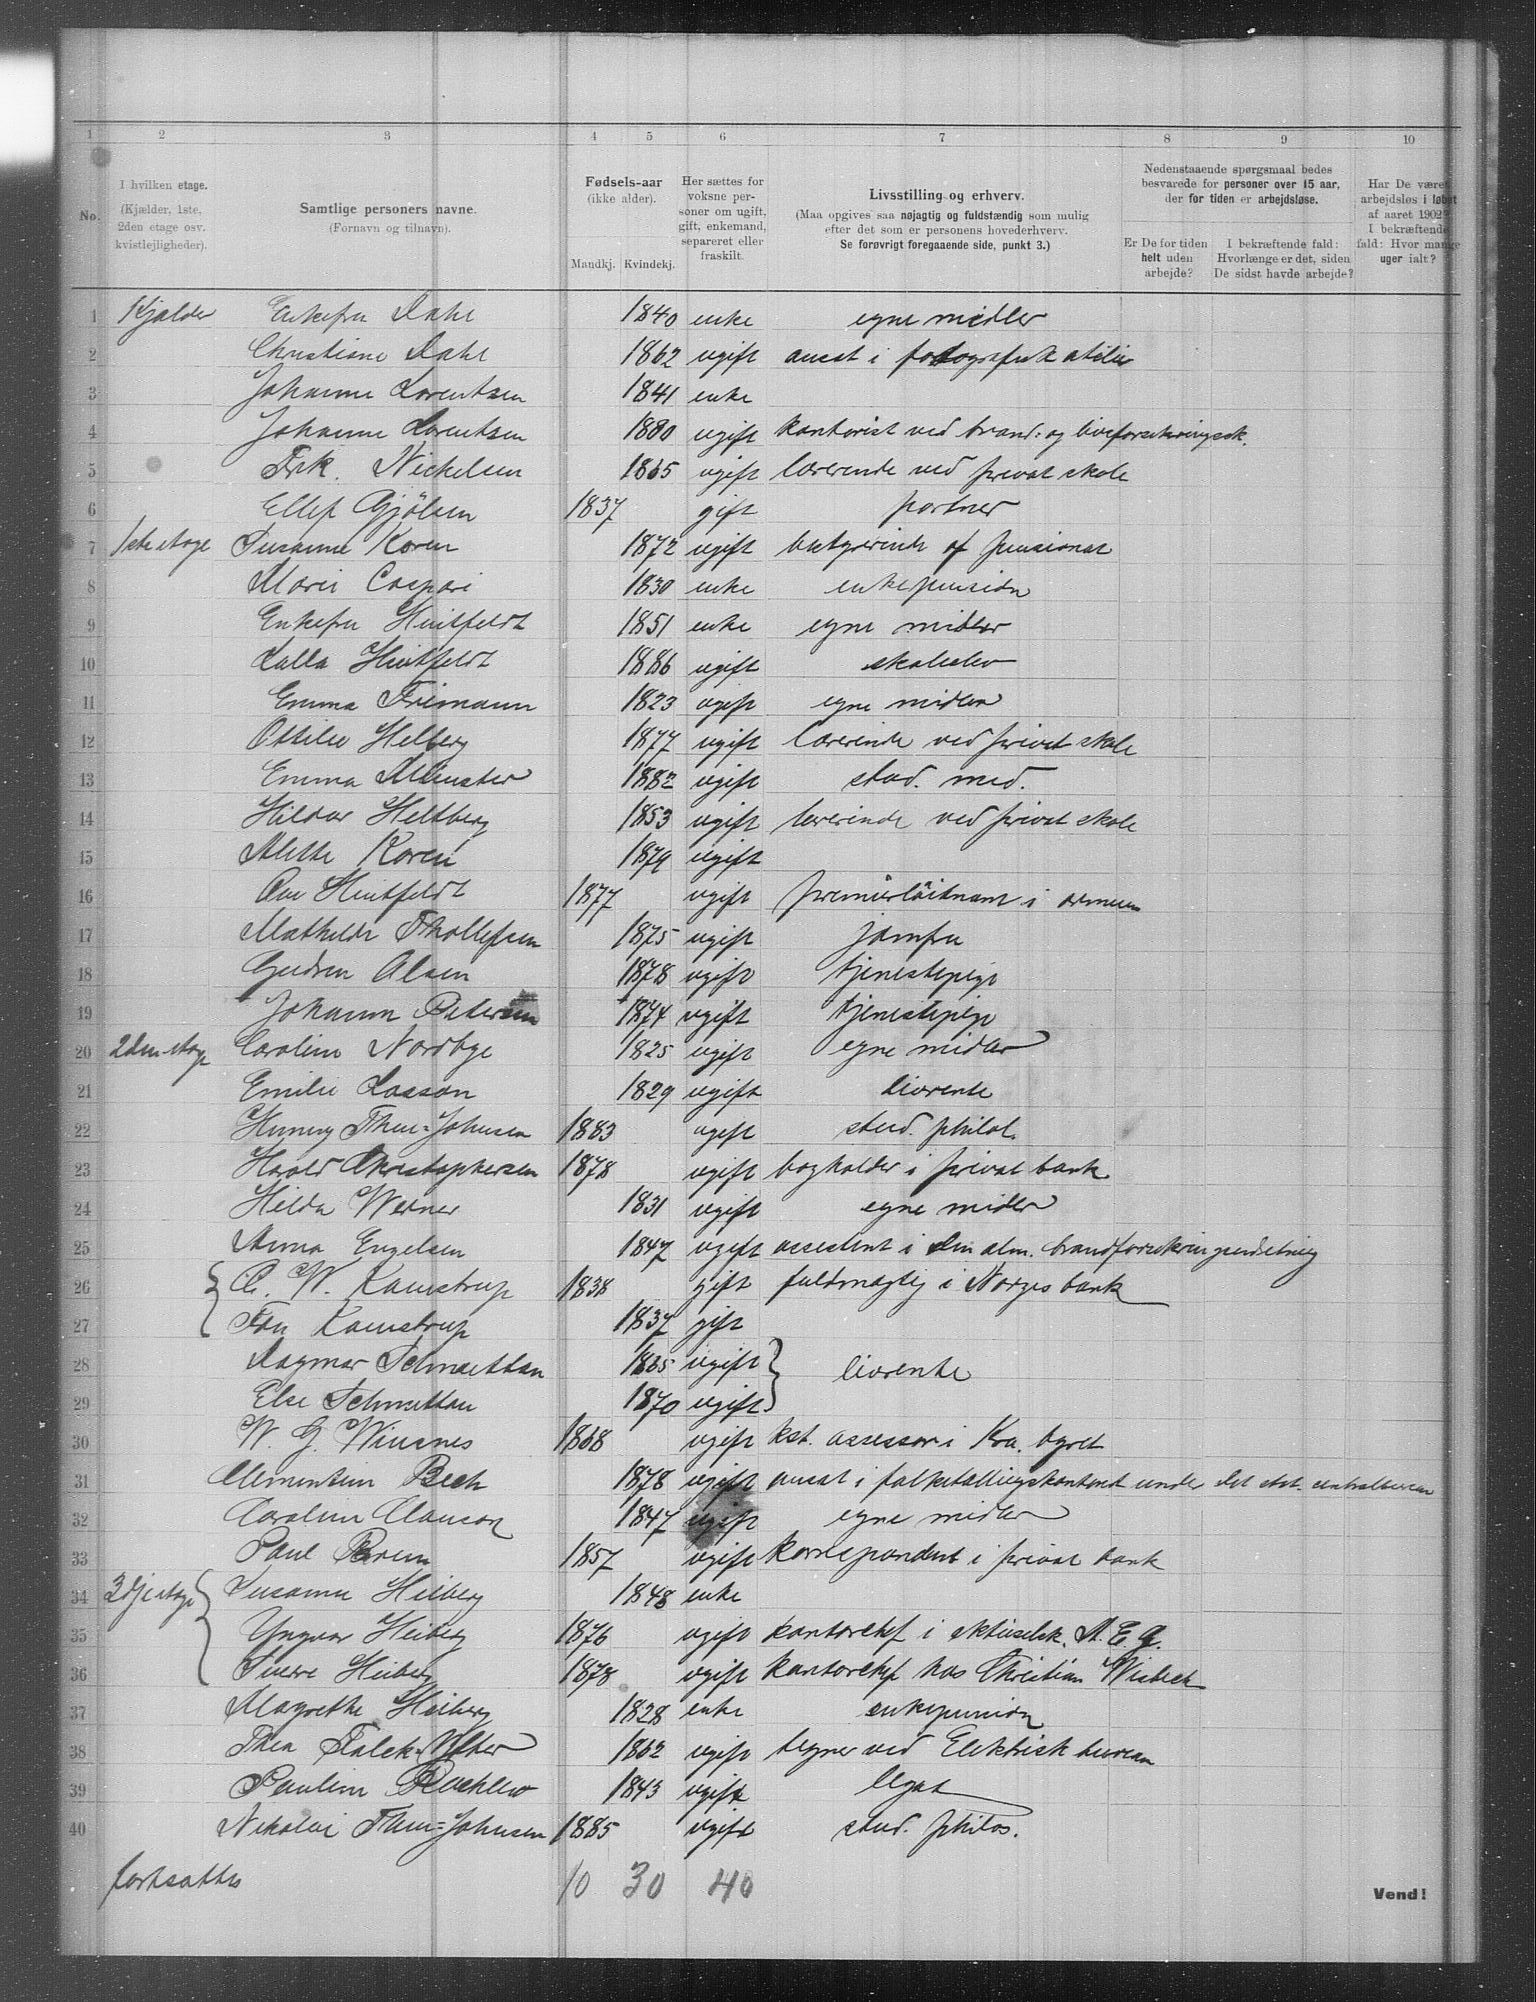 1 2 3 4 5 6 7 8 9 10
No.
I hvilken etage.
(Kjælder, 1ste,
2den etage osv.
kvistlejligheder).
Samtlige personers navne.
(Fornavn og tilnavn).
Fødsels-aar
(ikke alder).
Mandkj. Kvindekj.
Her sættes for
voksne per-
soner om ugift,
gift, enkemand,
separeret eller
fraskilt.
Livsstilling og erhverv.
(Maa opgives saa nøjagtig og fuldstændig som mulig
efter det som er personens hovederhverv.
Se forøvrigt foregaaende side, punkt 3.)
Nedenstaaende spørgsmaal bedes
besvarede for personer over 15 aar,
der for tiden er arbejdsløse.
Er De for tiden
helt uden
arbejde?
I bekræftende fald:
Hvorlænge er det, siden
De sidst havde arbejde?
Har De været
arbejdsløs i løbet
af aaret 1902?
I bekræftende
fald: Hvor mange
uger ialt?
1 Kjælder Enkefru Dahl 1840 enke egne midler
2 Christiane Dahl 1862 ugift ansat i fotografisk atelier
3 Johanne Lorentsen 1841 enke
4 Johanne Lorentsen 1880 ugift kontorist ved brand- og livsforsikringssk.
5 Frk. Nickelsen 1865 ugift lærerinde ved privat skole
6 Ellef Gjölsen 1837 gift portner
7 1ste etage Susanne Koren 1872 ugift bestyrerinde af pensionat
8 Marie Caspari 1830 enke enkepension
9 Enkefru Huitfeldt 1851 enke egne midler
10 Lalla Huitfeldt 1886 ugift skoleelev
11 Emma Friemann 1823 ugift egne midler
12 Ottilie Helberg 1877 ugift lærerinde ved privat skole
13 Emma Münster 1882 ugift stud. med.
14 Hildur Heltberg 1853 ugift lærerinde ved privat skole
15 Alette Koren 1879 ugift
16 Huitfeldt 1877 ugift premierløitnant i armeen
17 Mathilde Thollefsen 1875 ugift jomfru
18 Gudrun Olsen 1878 ugift tjenestepige
19 Johanne Petersen 1874 ugift tjenestepige
20 2den etage Caroline Nordbye 1825 ugift egne midler
21 Emilie Lasson 1829 ugift livrente
22 Henning Thue-Johnsen 1883 ugift stud. philol.
23 Harald Christophersen 1878 ugift bogholder i privat bank
24 Hilda Werner 1831 ugift egne midler
25 Anna Engelsen 1847 ugift assistent i den alm. brandforsikringsindretning
26 C. W. Kamstrup 1838 gift fuldmægtig i Norges bank
27 Fru Kamstrup 1837 gift
28 Dagmar Schmettau 1865 ugift livrente
29 Else Schmettau 1870 ugift
30 W. G. Winsnes 1868 ugift kst. assessor i Kra. byret
31 Clementine Bech 1878 ugift ansat i folketællingskontoret under det stat. centralbureau
32 Caroline Clauson 1847 ugift egne midler
33 Paul 1857 ugift korrespondent i privat bank
34 3dje etage Susanne Heiberg 1848 enke
35 Yngvar Heiberg 1876 ugift kontorchef i aktieselsk. A. E. G.
36 Sverre Heiberg 1878 ugift kontorchef hos Christian Wisbech
37 Magrethe Heiberg 1828 enke enkepension
38 Thea Falck-Ytter 1862 ugift tegner ved Elektrisk bureau
39 Pauline 1843 ugift legat
40 Nikolai Thue-Johnsen 1885 ugift stud. philos.
fortsættes 10 30 40
Vend!